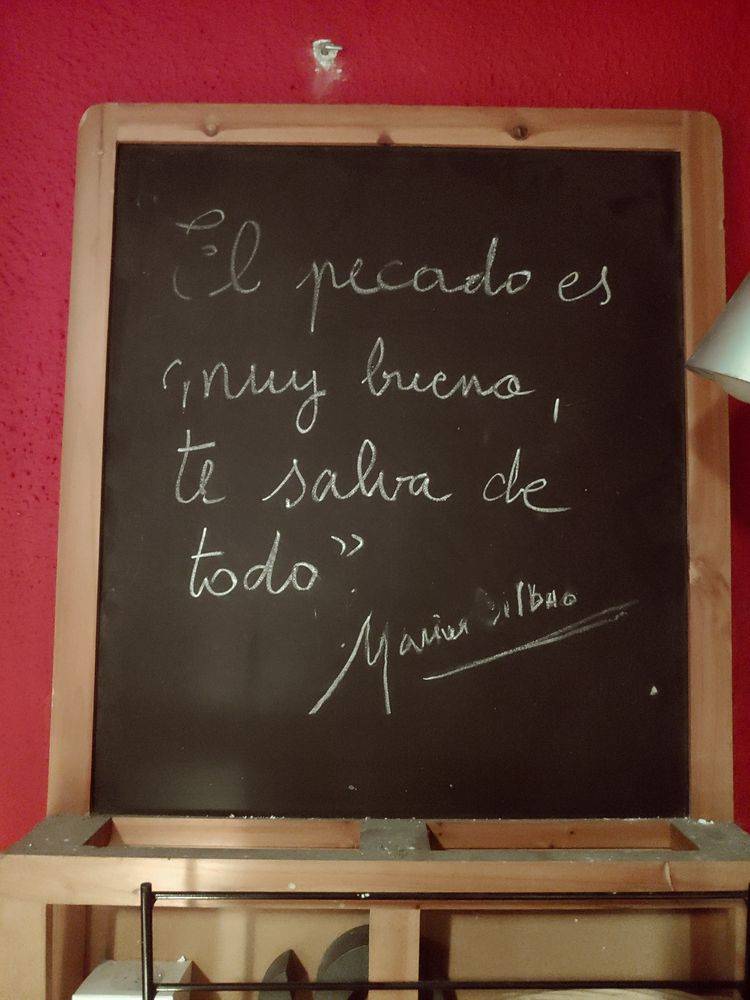 El pecado es
“muy bueno,
te salva de
todo”
Bilbao